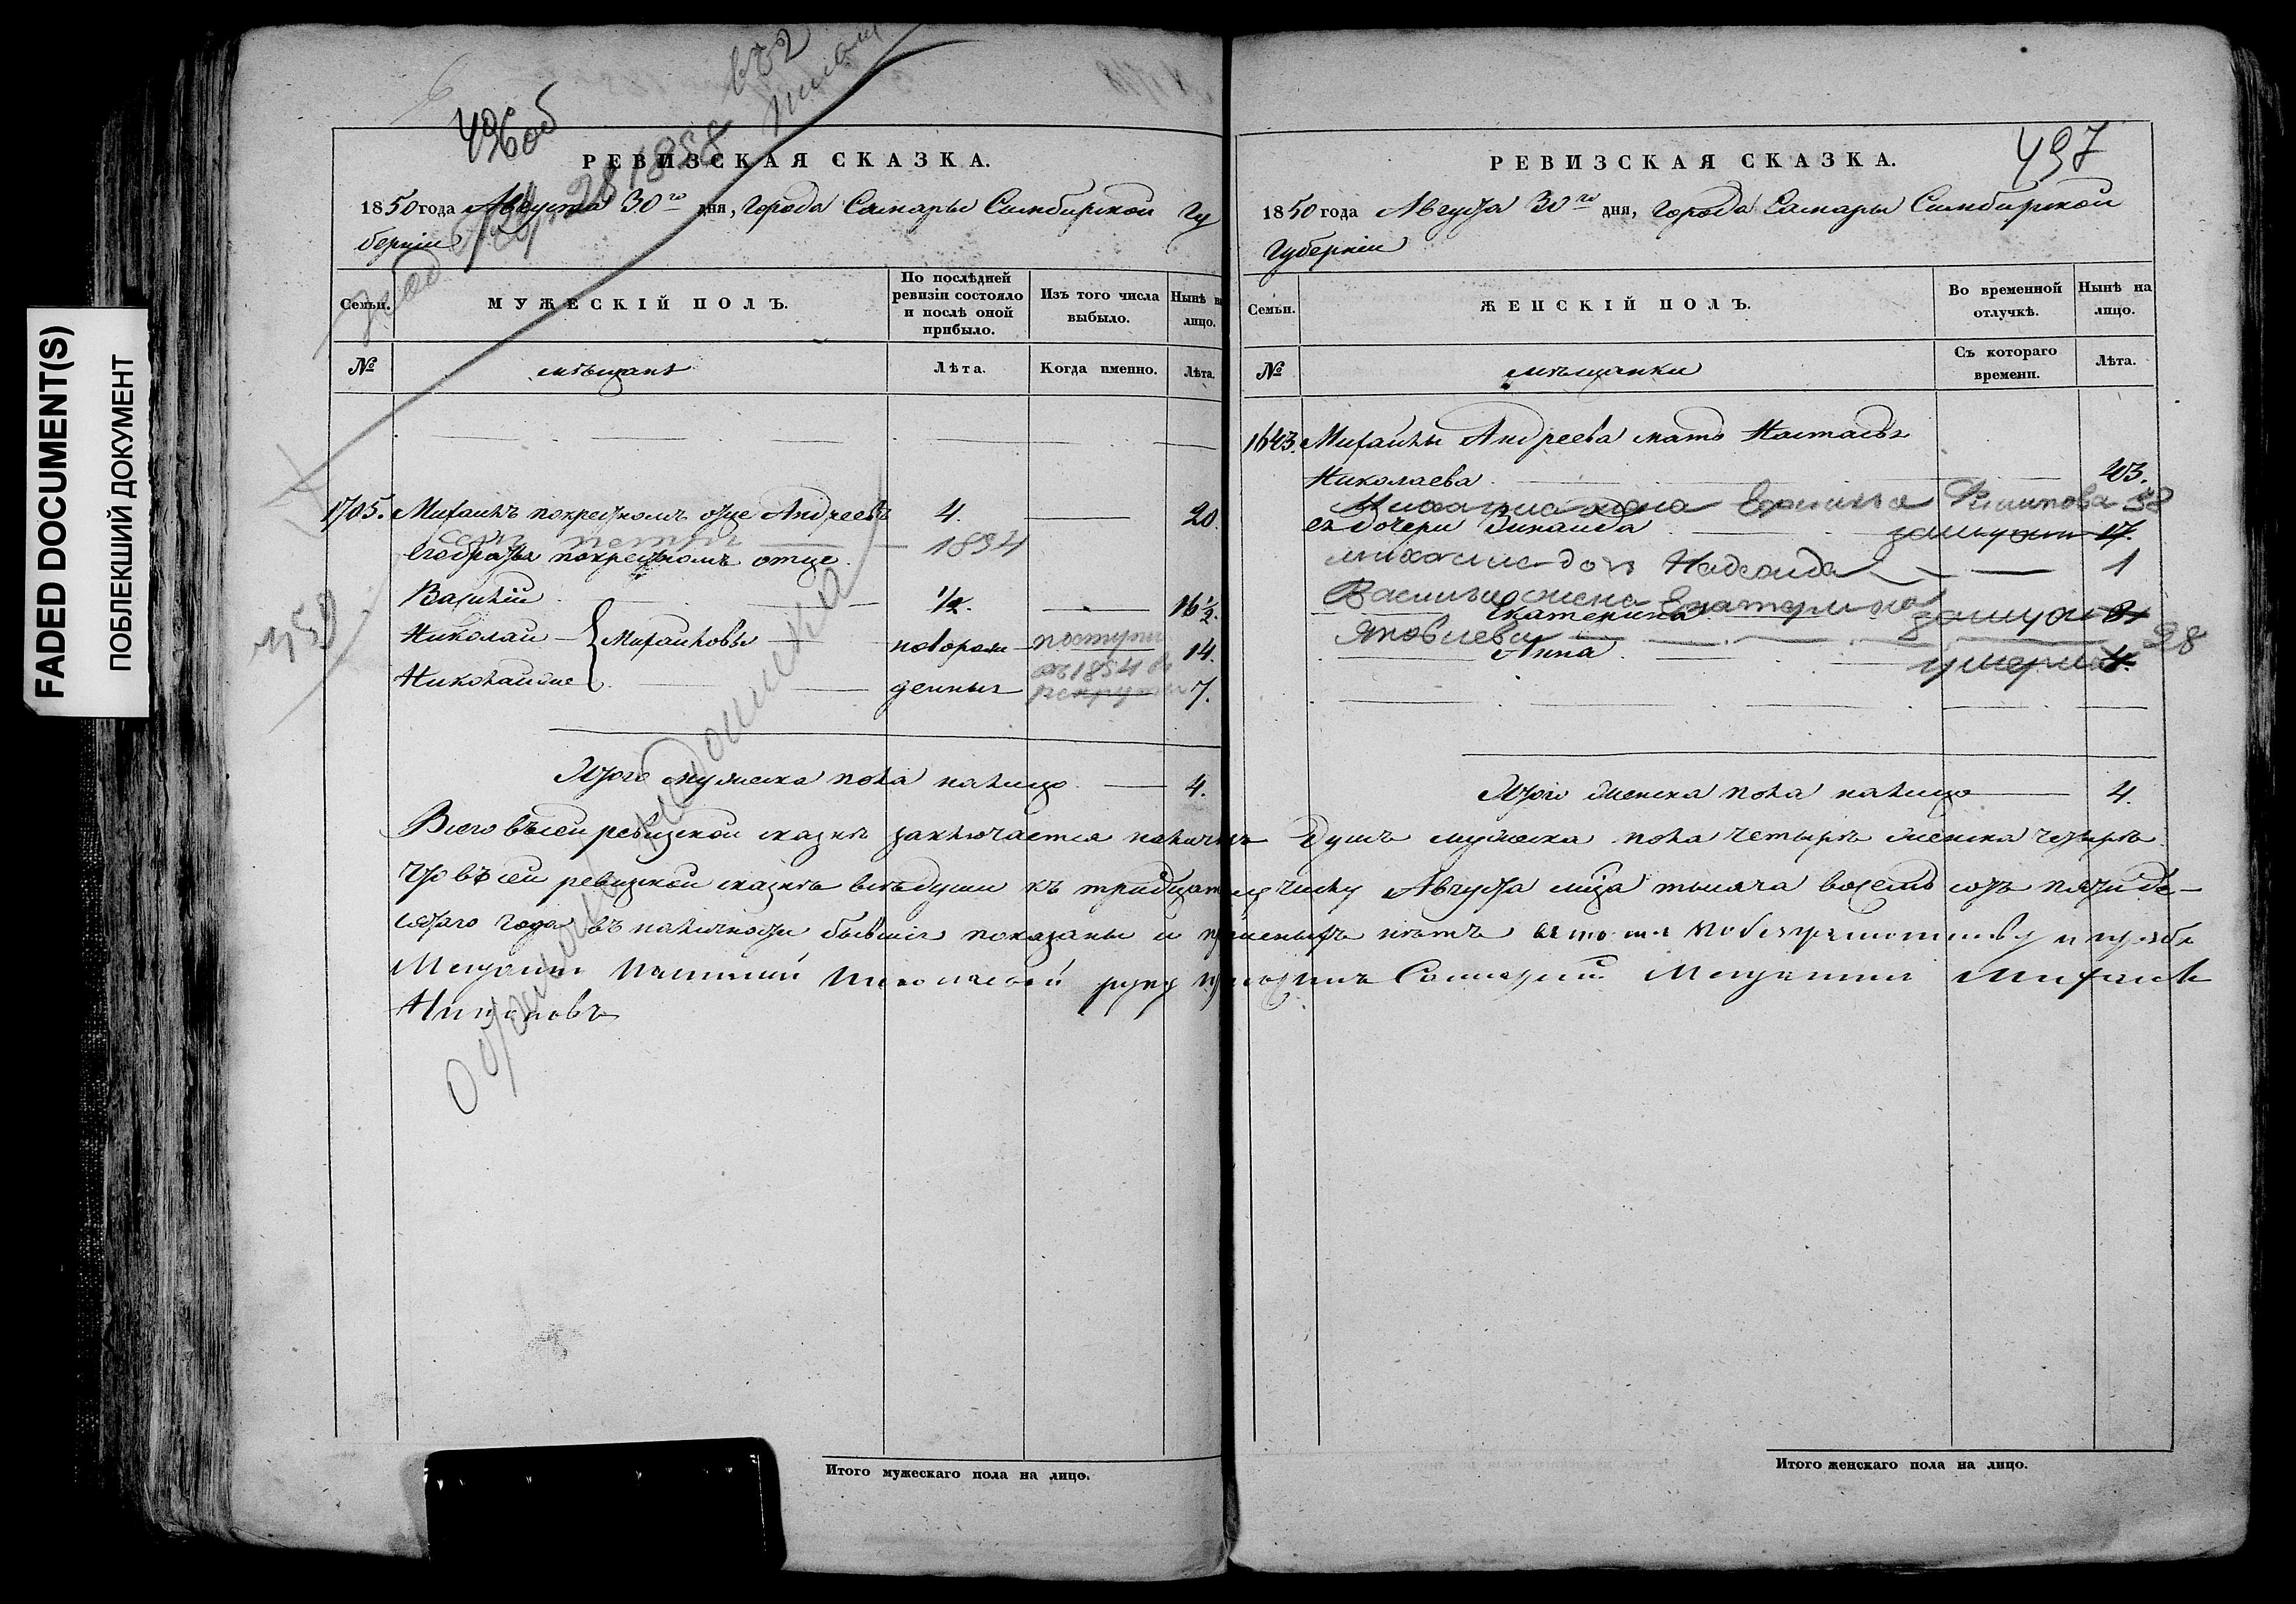 FADED DOCUMENT(S)
ПОБЛЕКШИЙ ДОКУМЕНТ
496об
РЕВИЗСКАЯ СКАЗКА.
1850 года Августа 30го дня, Города Самары Симбирской Гу
берніи
Семьи.
МУЖЕСКІЙ ПОЛЪ.
По послѣдней
ревизіи состояло
и послѣ оной
прибыло.
Изъ того числа
выбыло.
Нынѣ на
лицо.
№
мѣщанъ
Лѣта.
Когда именно.
Лѣта.
1705. Михаилъ по крестномъ отце Андреевъ 4. 20.
сынъ Петръ 1854
Его братья по крестномъ отце
Василій ½. 16½.
Николай Михайловы новорож 14.
поступи
въ 1854 в
рекруты
Николай 2й денныя 7.
Итого мужеска пола налицо 4.
1858
недоимка
497
РЕВИЗСКАЯ СКАЗКА.
1850 года Августа 30го дня, Города Самары Симбирской
Губерніи
Семьи.
ЖЕНСКІЙ ПОЛЪ.
Во временной
отлучкѣ.
Нынѣ на
лицо.
№
мѣщанки
Съ котораго
времени.
Лѣта.
1643. Михайлы Андреева мать Наталья
Николаева 43.
жена Филипова 38
ея дочери Зинаида замужем 17.
Михаила доч Надежда 1
Василия жена Екатерина
Екатерина замужем
Яковлева 28
Анна умерла 4.
Итого женска пола налицо 4.
Всего въ сей ревизской сказкѣ заключается наличныхъ душъ мужеска пола четыре женска четыре
Что въ сей ревизской сказкѣ всѣ души къ тридцатому числу Августа мца тысяча восемь сотъ пятиде-
сятаго года въ наличности бывшія показаны и прописныхъ нѣтъ въ томъ по безграмотству и прозбѣ
Мещанки Натальи Николаевой руку приложилъ Самарскій Мещанинъ Михаилъ